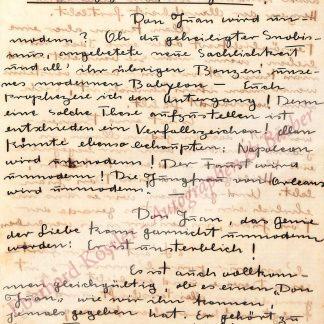 Don Juan wird un-
modern? Oh du geheiligter Snobis-
mus, angebetete neue Sachlichkeit
und all' ihr übrigen Bonzen unse-
res modernen Babylon — Euch
prophezeie ich den Untergang! Denn
eine solche These aufzustellen ist
entschieden ein Verfallszeichen. Man
könnte ebenso behaupten: Napoleon
wird unmodern! Der Faust wird
unmodern! Die Jungfrau von Orleans
wird unmodern. —
Don Juan, das Genie
der Liebe kann garnicht unmodern
werden! Er ist unsterblich!
Es ist auch vollkom-
men gleichgültig, ob es einen Don
Juan, wie wir ihn kennen,
jemals gegeben hat. Er gehört zu